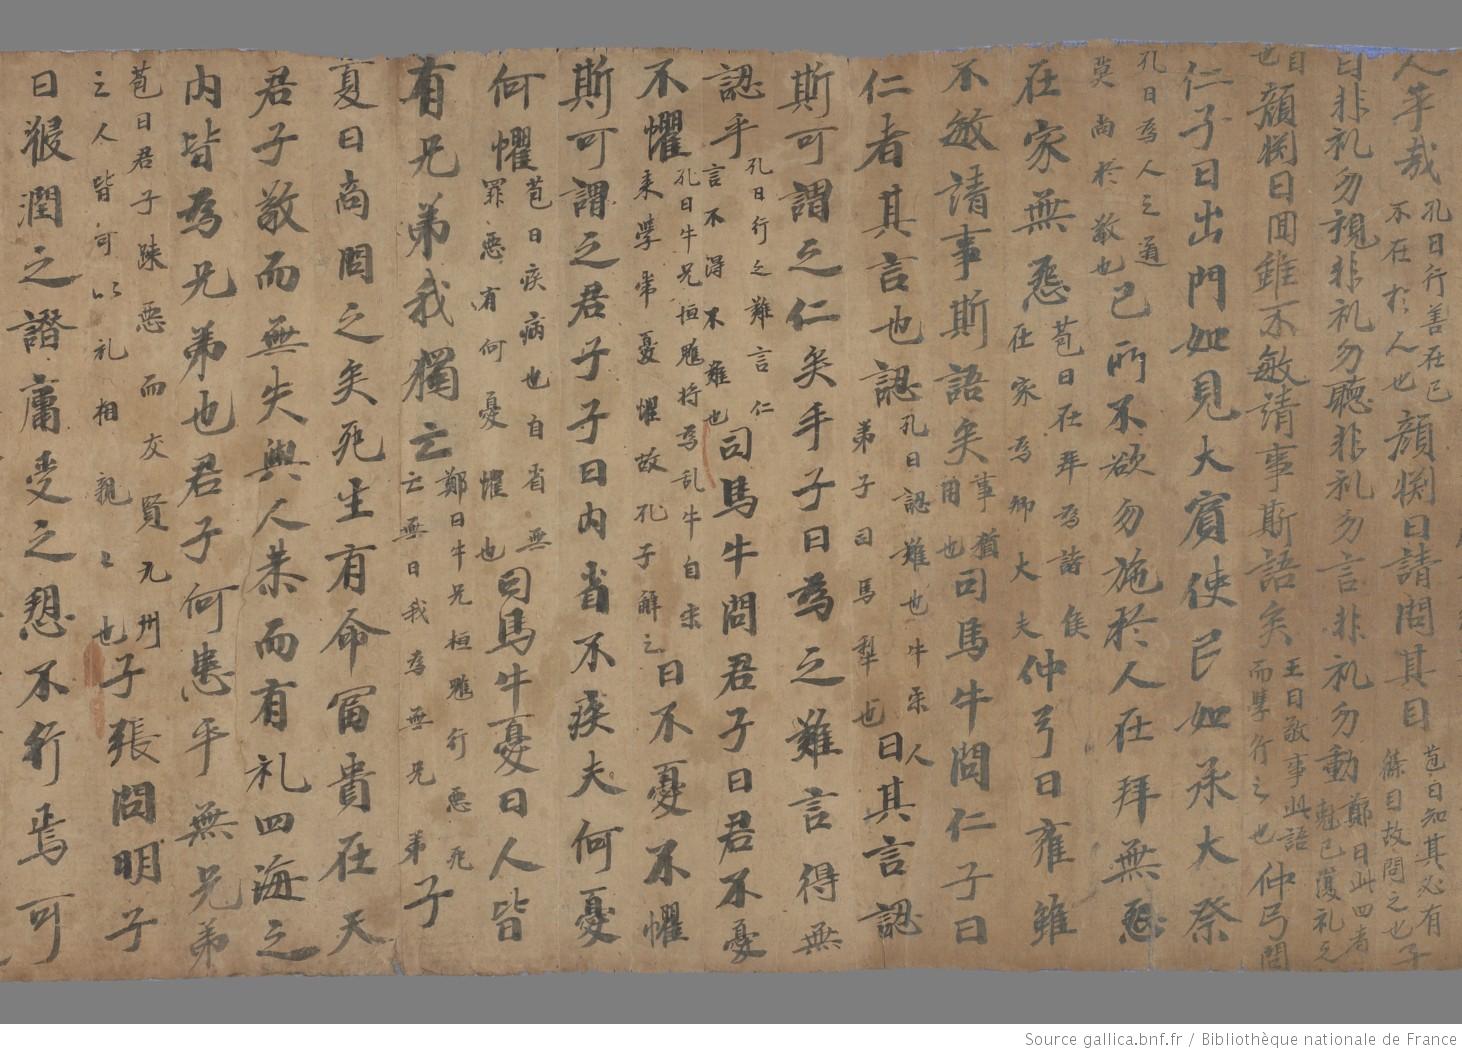 人乎哉孔曰行善在己不在於人也顏渊曰請問其目苞曰知其必有條目故問之也子
曰非礼勿視非礼勿聽非礼勿言非礼勿動鄭曰此四者尅己復礼之
目也顏渊曰囬雖不敏請事斯語矣王曰敬事此語而學行之也仲弓問
仁子曰出門如見大賓使民如承大祭
孔曰為人之道莫尚於敬也己所不欲勿施於人在拜無怨
在家無怨苞曰在拜為諸侯在家為卿大夫仲弓曰雍雖
不敏請事斯語矣事猶用也司馬牛問仁子曰
仁者其言也認孔曰認難也牛宋人弟子司馬犁也曰其言認
斯可謂之仁矣乎子曰為之難言得無
認乎孔曰行之難言仁言不得不難也司馬牛問君子曰君不憂
不懼孔曰牛兄桓魋将為乱牛自宋来學常憂懼故孔子解之曰不憂不懼
斯可謂之君子子曰内省不疚夫何憂
何懼苞曰疾病也自省無罪惡有何憂懼也司馬牛憂曰人皆
有兄弟我獨亡鄭曰牛兄桓魋行惡死亡無日我為無兄弟子
夏曰商聞之矣死生有命冨貴在天
君子敬而無失與人恭而有礼四海之
内皆為兄弟也君子何患乎無兄弟
苞曰君子踈惡而友賢九州之人皆可以礼相親〻也子張問明子
曰浸潤之譖庸受之愬不行焉可
Source gallica.bnf.fr / Bibliothèque nationale de France